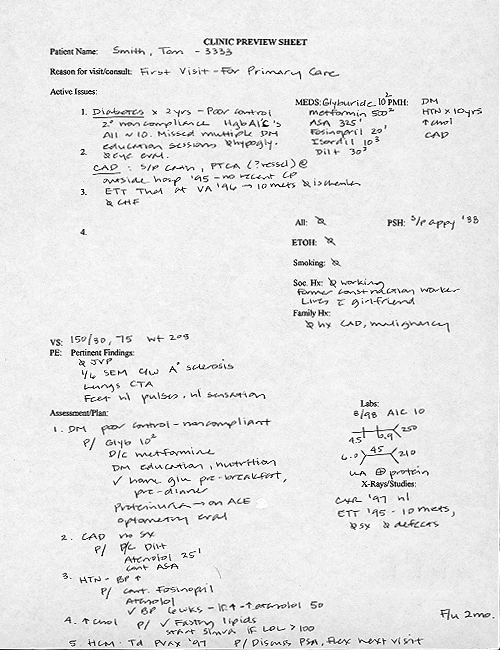 CLINIC PREVIEW SHEET
Patient Name: Smith, Tom - 3333
Reason for visit/consult: First Visit - For Primary Care
Active Issues:
1. Diabetes x 2 yrs - Poor control
2° noncompliance HgbA1C's
All ~ 10. Missed multiple DM
education sessions Ø hypogly.
2. Ø eye eval.
CAD: S/P Cath, PTCA (? vessel) @
outside hosp '95 - no recent CP
3. ETT Thal at VA '96 → 10 mets Ø ischemia
Ø CHF
4.
MEDS: Glyburide 10²
metformin 500²
ASA 325'
Fosinopril 20'
Isordil 10³
Dilt 30³
PMH: DM
HTN x 10 yrs
↑ chol
CAD
All: Ø
PSH: S/P appy '88
ETOH: Ø
Smoking: Ø
Soc. Hx: Ø working
Former construction worker
Lives c̄ girlfriend
Family Hx:
Ø hx CAD, malignancy
VS: 150/80, 75 wt 205
PE: Pertinent Findings:
Ø JVP
1/6 SEM c/w A° sclerosis
Lungs CTA
Feet nl pulses, nl sensation
Assessment/Plan:
1. DM poor control - noncompliant
P/ Glyb 10²
D/c metformine
DM education, nutrition
✓ home glu pre-breakfast,
pre-dinner
Proteinuria → on ACE
optometry eval
2. CAD no sx
P/ D/C Dilt
Atenolol 25'
cont ASA
3. HTN - BP ↑
P/ cont. Fosinopril
Atenolol
✓ BP 6 wks - if ↑ → ↑ atenolol 50
4. ↑ chol P/ ✓ Fasting lipids
start Simva if LDL > 100
5. HCM - Td Pvax '97 P/ Discuss PSA, Flex next visit
Labs:
8/98 A1C 10
45 6.9 250
6.0 45 210
UA ⊕ protein
X-Rays/Studies:
CXR '97 nl
ETT '95 - 10 mets,
Ø sx Ø defects
F/u 2 mo.